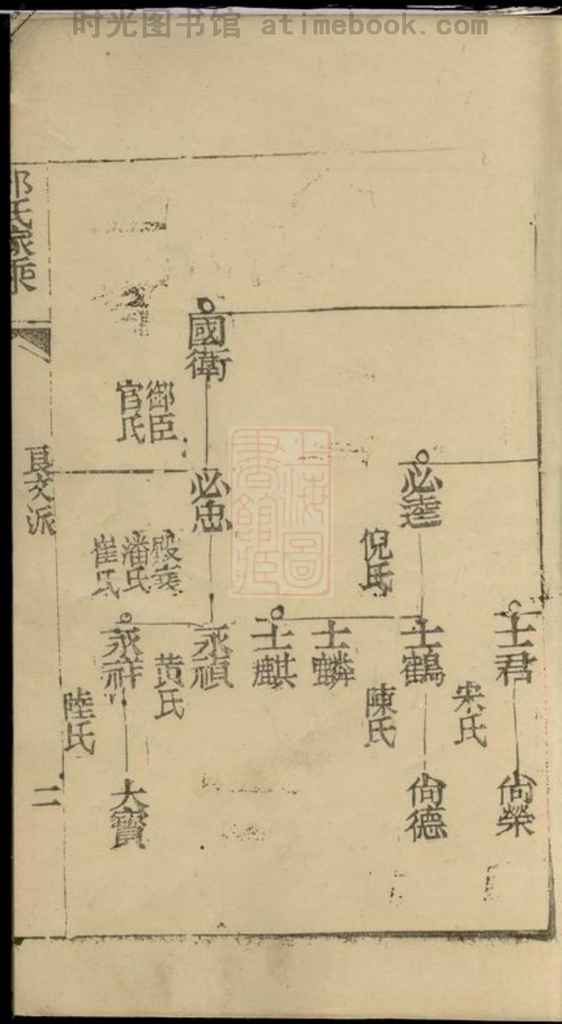 时光图书馆 atimebook.com
國衛
御臣
官氏
必忠
殷乘
潘氏
崔氏
必達
倪氏
士君
宋氏
士鶴
陳氏
士麟
士麒
丞禎
黄氏
丞祥
陸氏
尙榮
尙德
大寶
氏家乘
良文派
二